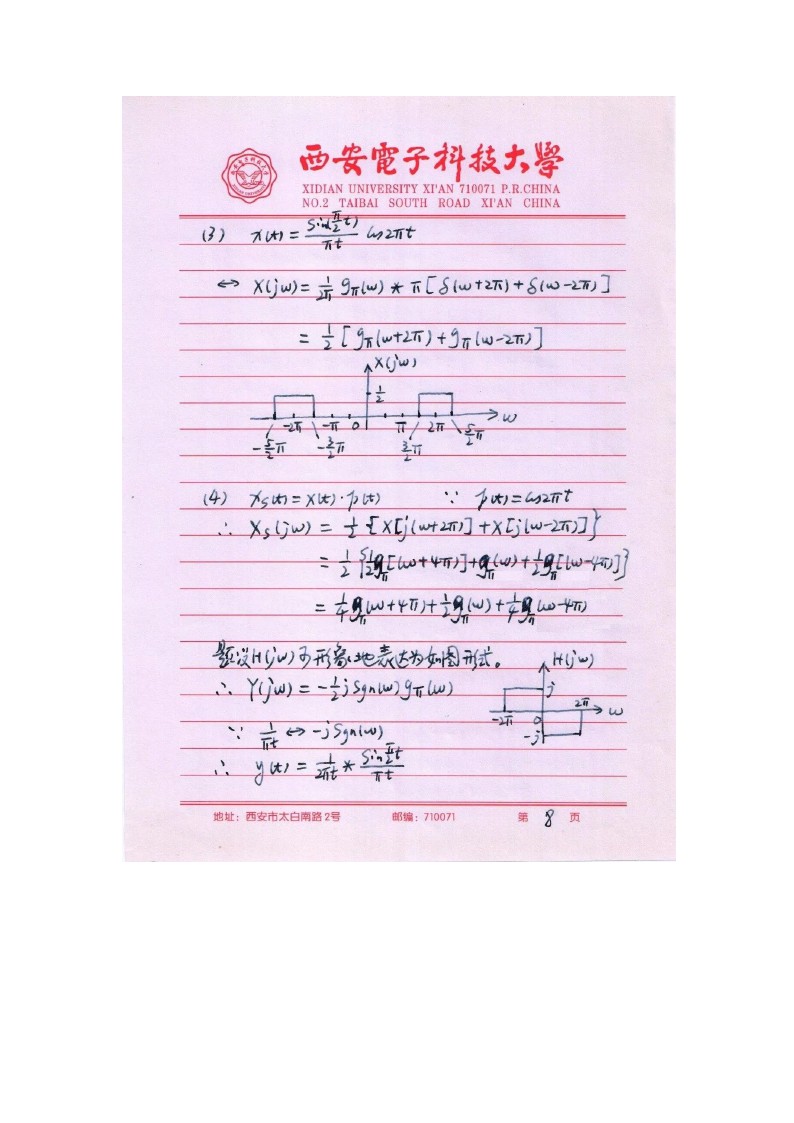 西安電子科技大學
XIDIAN UNIVERSITY XI'AN 710071 P.R.CHINA
NO.2 TAIBAI SOUTH ROAD XI'AN CHINA
(3) x(t) = sin(π/2 t)/πt cos2πt
↔ X(jω) = 1/2π g_π(ω) * π[δ(ω+2π)+δ(ω-2π)]
= 1/2 [g_π(ω+2π)+g_π(ω-2π)]
X(jω)
1/2
-2π -π 0 π 2π ω
-5/2π -3/2π 3/2π 5/2π
(4) x_s(t) = x(t)·p(t) ∵ p(t) = cos2πt
∴ X_s(jω) = 1/2 {X[j(ω+2π)] + X[j(ω-2π)]}
= 1/2 {1/2 g_π[(ω+4π)] + g_π(ω) + 1/2 g_π[(ω-4π)]}
= 1/4 g_π(ω+4π) + 1/2 g_π(ω) + 1/4 g_π(ω-4π)
题设H(jω)可形象地表达为如图形式。
H(jω)
∴ Y(jω) = -1/2 j sgn(ω) g_π(ω)
j
-2π 0 2π ω
-j
∵ 1/πt ↔ -j sgn(ω)
∴ y(t) = 1/2πt * sin π/2 t/πt
地址：西安市太白南路2号 邮编：710071 第 8 页